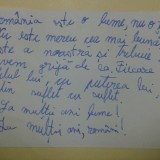 România este o lume, nu o
este mereu cea mai bună
este a noastră și trebuie
avem grijă de ea. Fiecare
lui, cu puterea lui
din suflet cu suflet.
La mulți ani lume!
La mulți ani, români!